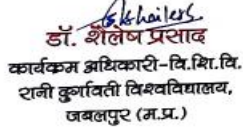 डॉ. शैलेष प्रसाद
कार्यकम अधिकारी-वि.शि.वि.
रानी दुर्गावती विश्वविद्यालय,
जबलपुर (म.प्र.)